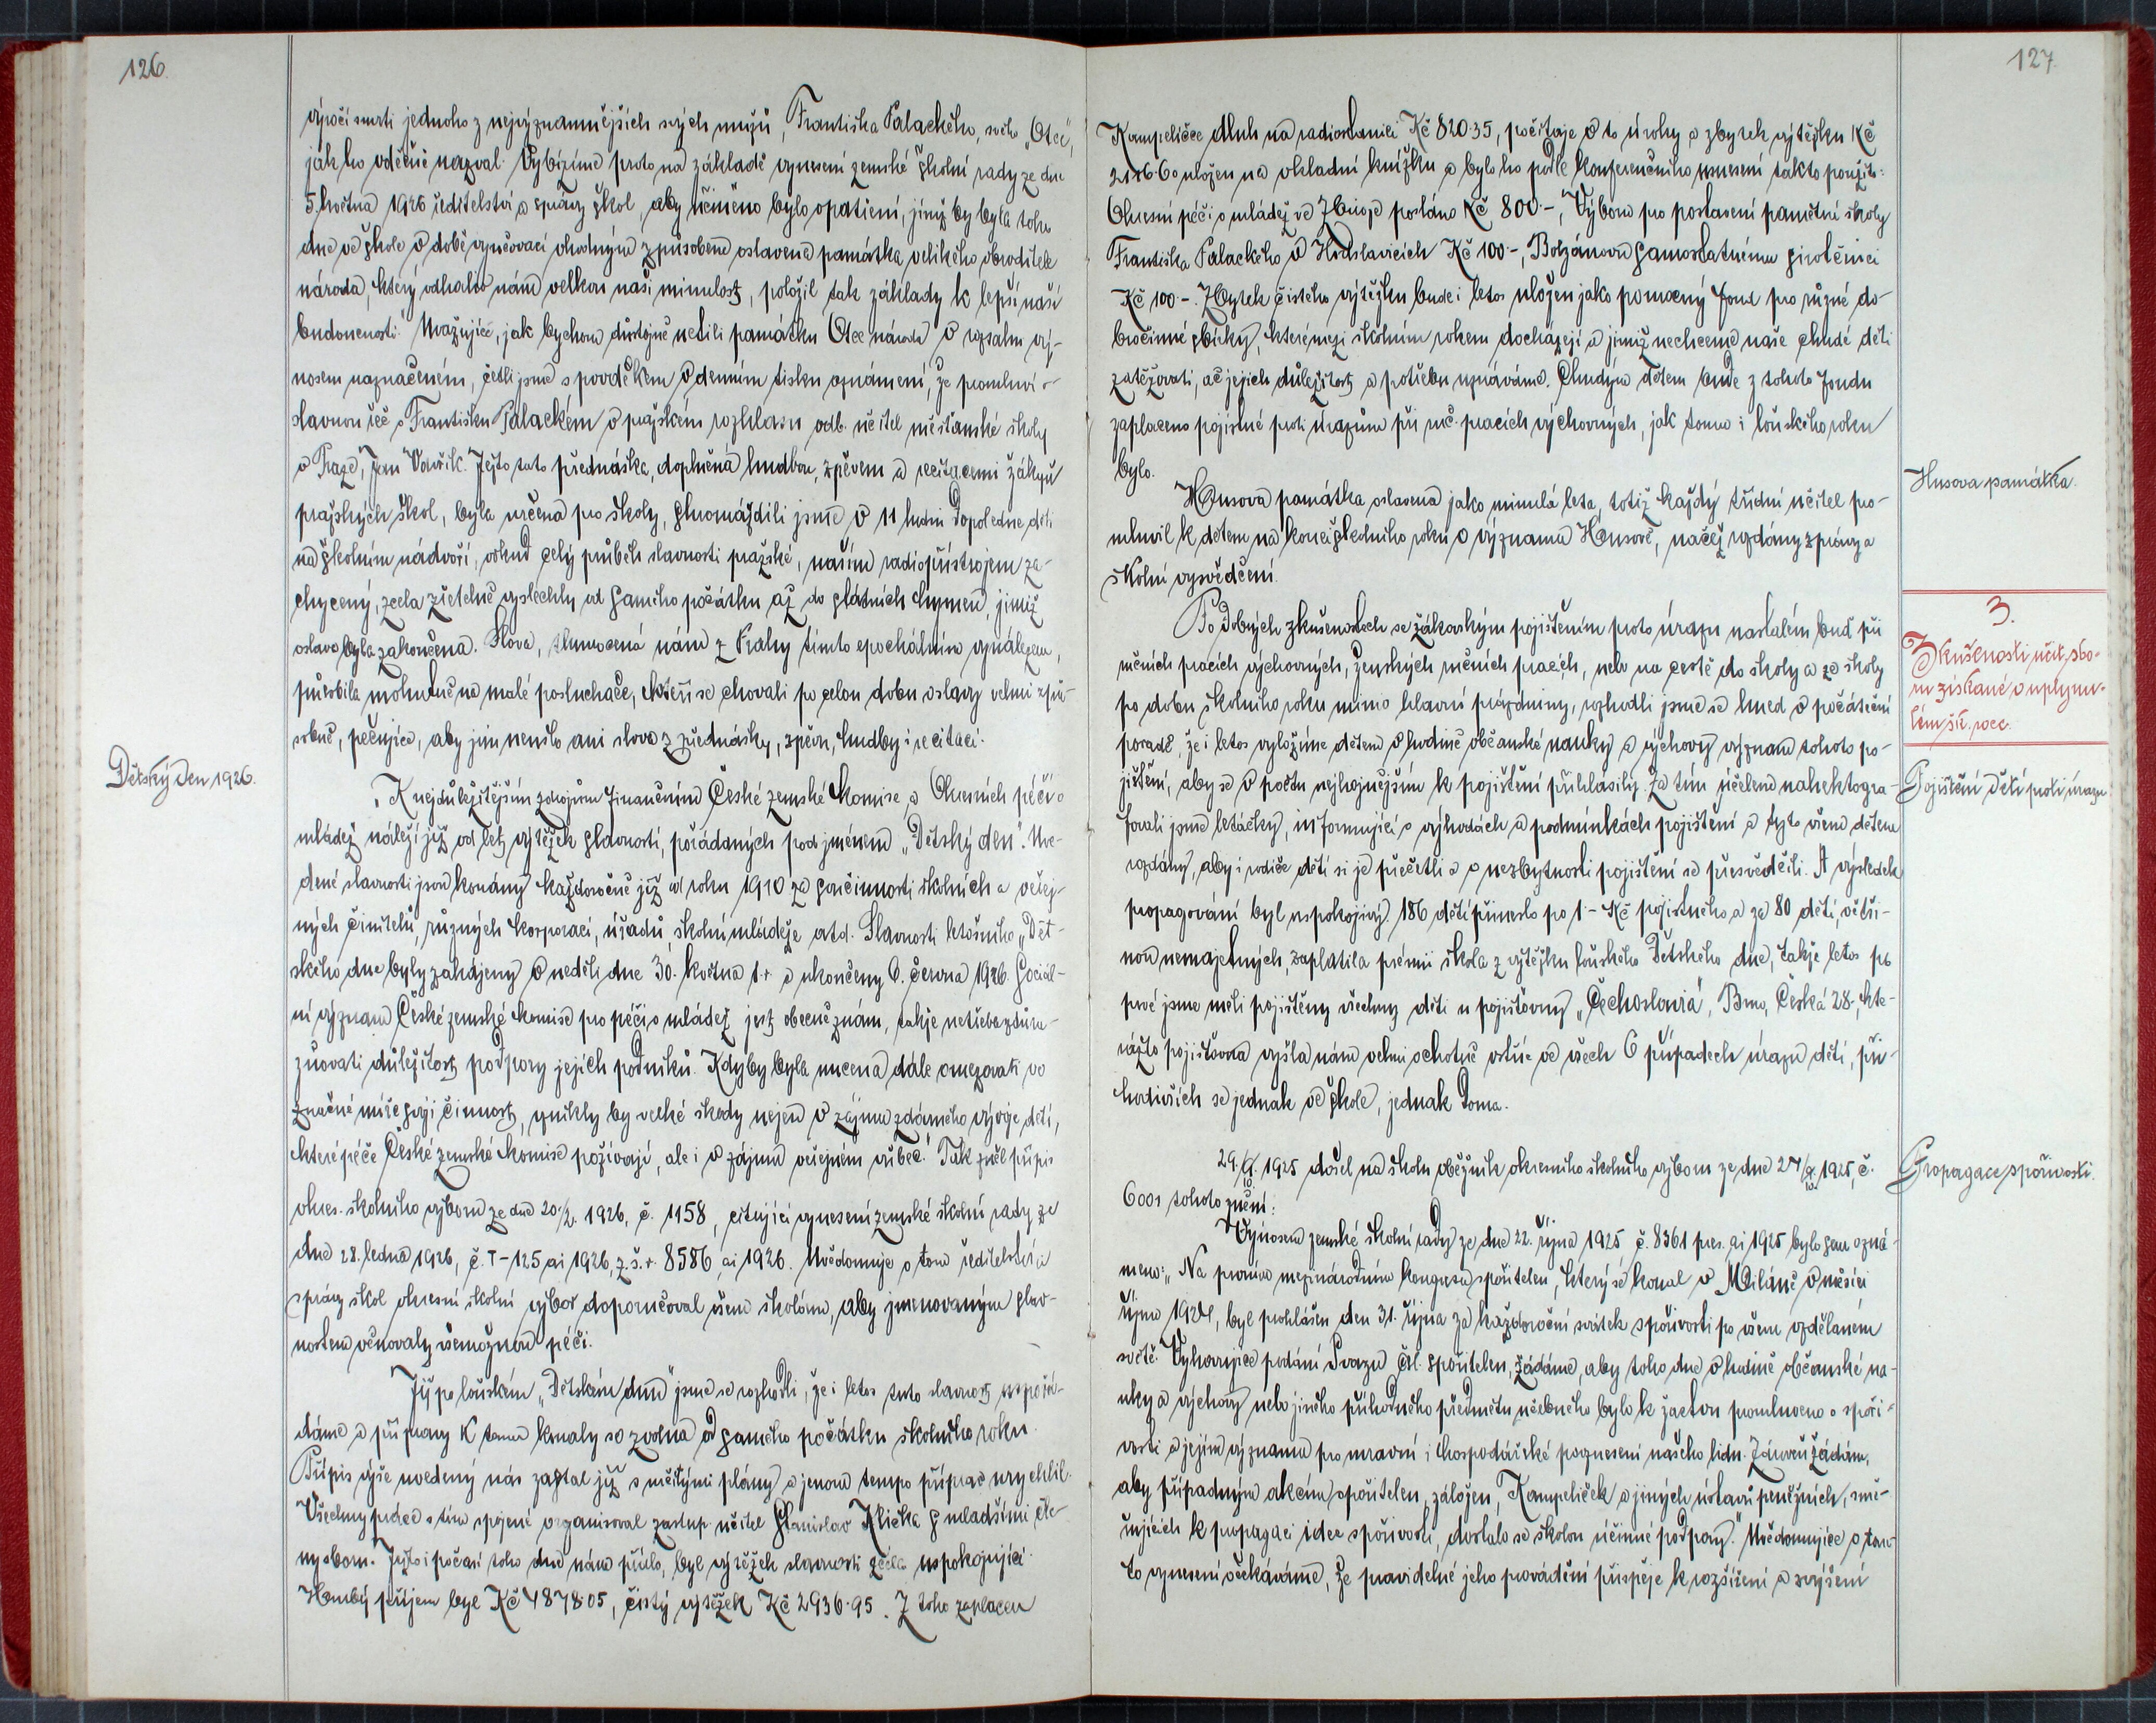 126.
výročí smrti jednoho z nejvýznamnějších svých mužů, Františka Palackého, svého „Otce",
jak ho vděčně nazval. Vybízíme proto na základě vynesení zemské školní rady ze dne
5. května 1926 ředitelství a správy škol, aby učiněno bylo opatření, jímž by byla toho
dne ve škole v době vyučovací vhodným způsobem oslavena památka velikého buditele
národa, který odhaliv nám velkou naši minulost, položil tak základy k lepší naší
budoucnosti." Uvažujíce, jak bychom důstojně uctili památku Otce národa v rozsahu vý-
nosem naznačeném, četli jsme s povděkem v denním tisku oznámení, že promluví o-
slavnou řeč o Františku Palackém v pražském rozhlasu odb. učitel měšťanské školy
v Praze, Jan Vavřík. Ježto tato přednáška, doplněná hudbou, zpěvem a recitacemi žákyň
pražských škol, byla určena pro školy, shromáždili jsme v 11 hodin dopoledne děti
na školním nádvoří, odkud celý průběh slavnosti pražské, naším radiopřístrojem za-
chycený, zcela zřetelně vyslechly od samého počátku až do státních hymen, jimiž
oslava byla zakončena. Slova, tlumočená nám z Prahy tímto epochálním vynálezem,
působila mohutně na malé posluchače, kteří se chovali po celou dobu oslavy velmi způ-
sobně, pečujíce, aby jim neušlo ani slovo z přednášky, zpěvu, hudby i recitací.
Dětský den 1926.
„K nejdůležitějším zdrojům finančním České zemské komise a Okresních péčí o
mládež náleží již od let výtěžek slavností, pořádaných pod jménem „Dětský den". Uve-
dené slavnosti jsou konány každoročně již od roku 1910 za součinnosti školních a veřej-
ných činitelů, různých korporací, úřadů, školní mládeže atd. Slavnosti letošního „Dět-
ského dne byly zahájeny v neděli dne 30. května t. r. a ukončeny 6. června 1926. Sociál-
ní význam České zemské komise pro péči o mládež jest obecně znám, takže netřeba zdůra-
zňovati důležitost podpory jejích podniků. Kdyby byla nucena dále omezovati ve
značné míře svoji činnost, vznikly by velké škody nejen v zájmu zdárného vývoje dětí,
které péče České zemské komise požívají, ale i v zájmu veřejném vůbec." Tak zněl přípis
okres. školního výboru ze dne 20./2. 1926, č. 1158, citující vynesení zemské školní rady ze
dne 28. ledna 1926, č. I-125 ai 1926, z. š. r. 8586 ai 1926. Uvědomuje o tom ředitelství a
správy škol okresní školní výbor doporučoval všem školám, aby jmenovaným slav-
nostem věnovaly všemožnou péči.
Již po loňském „Dětském dnu" jsme se rozhodli, že i letos tuto slavnost uspořá-
dáme a přípravy k tomu konaly se zvolna od samého počátku školního roku.
Přípis výše uvedený nás zastal již s určitými plány a jenom tempo příprav urychlil.
Všechny práce s tím spojené organisoval zastup. učitel Stanislav Klička s mladšími čle-
ny sboru. Ježto i počasí toho dne nám přálo, byl výtěžek slavnosti zcela uspokojující.
Hrubý příjem byl Kč 4878·05, čistý výtěžek Kč 2936·95. Z toho zaplacen
127.
Kampeličce dluh na radiostanici Kč 820·35, počítaje v to úroky a zbytek výtěžku Kč
2116·60 uložen na vkladní knížku a bylo ho podle konferenčního usnesení takto použito:
Okresní péči o mládež ve Znojmě posláno Kč 800·-, Výboru pro postavení památní školy
Františka Palackého v Hodslavicích Kč 100·-, Bolzánovu samostatnému sirotčinci
Kč 100·-. Zbytek čistého výtěžku bude i letos uložen jako pomocný fond pro různé do-
bročinné sbírky, které mezi školním rokem docházejí a jimiž nechceme naše chudé děti
zatěžovati, ač jejich důležitost a potřebu uznáváme. Chudým dětem bude z tohoto fondu
zaplaceno pojistné proti úrazům při ruč. pracích výchovných, jak tomu i loňského roku
bylo.
Husova památka.
Husova památka oslavena jako minulá léta, totiž každý třídní učitel pro-
mluvil k dětem na konci školního roku o významu Husově, načež rozdány zprávy a
školní vysvědčení.
3.
Zkušenosti učit. sbo-
ru získané v uplynu-
lém šk. roce.
Po dobrých zkušenostech se žákovským pojištěním proti úrazu nastalém buď při
ručních pracích výchovných, ženských ručních pracích, nebo na cestě do školy a ze školy
po dobu školního roku mimo hlavní prázdniny, rozhodli jsme se hned v počáteční
poradě, že i letos vyložíme dětem v hodině občanské nauky a výchovy význam tohoto po-
jištění, aby se v počtu nejhojnějším k pojištění přihlásily. Za tím účelem nahektogra-
Pojištění dětí proti úrazu.
fovali jsme letáčky, informující o výhodách a podmínkách pojištění a tyto všem dětem
rozdány, aby i rodiče dětí si je přečetli a o nezbytnosti pojištění se přesvědčili. A výsledek
propagování byl uspokojivý. 186 dětí přineslo po 1·- Kč pojistného a za 80 dětí, větši-
nou nemajetných, zaplatila prémii škola z výtěžku loňského Dětského dne, takže letos po
prvé jsme měli pojištěny všechny děti u pojišťovny „Čechoslavia", Brno, Česká 28, kte-
rážto pojišťovna vyšla nám velmi ochotně vstříc ve všech 6 případech úrazu dětí, při-
hodivších se jednak ve škole, jednak doma.
Propagace spořivosti.
29./X. 1925 došel na školu oběžník okresního školního výboru ze dne 27./X. 1925, č.
6001 tohoto znění:
Výnosem zemské školní rady ze dne 22. října 1925 č. 8361 pres. ai 1925 bylo sem ozná-
meno: „Na prvním mezinárodním kongresu spořitelen, který se konal v Miláně v měsíci
říjnu 1924, byl prohlášen den 31. října za každoroční svátek spořivosti po všem vzdělaném
světě. Vyhovujíce podání Svazu čsl. spořitelen, žádáme, aby toho dne v hodině občanské na-
uky a výchovy nebo jiného příhodného předmětu učebného bylo k žactvu promluveno o spoři-
vosti a jejím významu pro mravní i hospodářské povznesení našeho lidu. Zároveň žádám,
aby případným akcím spořitelen, záložen, Kampeliček a jiných ústavů peněžních, smě-
řujících k propagaci idee spořivosti, dostalo se školou účinné podpory." Uvědomujíce o tom-
to vynesení očekáváme, že pravidelné jeho provádění přispěje k rozšíření a zvýšení